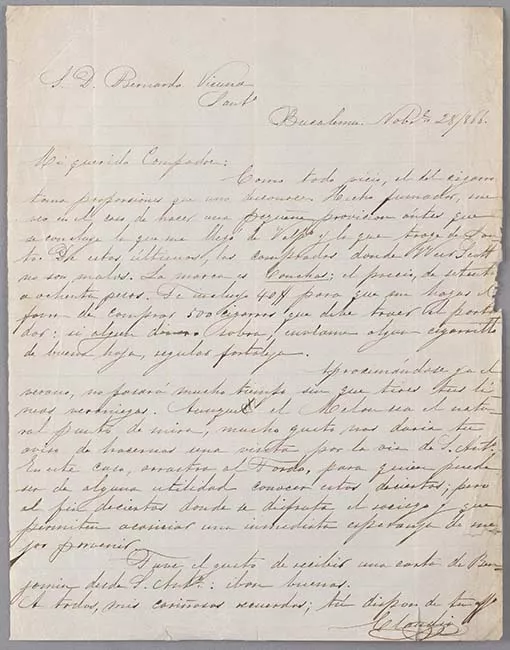 S. D. Bernardo Vicuña
Santº
Bucalemu. Nobre 28/866.
Mi querido Compadre:
Como todo vicio, el del cigarro
toma proporciones que uno desconoce. Hecho fumador, me
veo en el caso de hacer una pequeña provision antes que
se concluya lo que me llegó de Valpº y lo que traje de San-
tº. De estos últimos, los comprados donde Wer Scott
no son malos. La marca es Conchas; el precio, de setenta
a ochenta pesos. Te incluyo 40$ para que me hagas el
favor de comprar 500 cigarros que debe traer el porta-
dor: si algun dinero sobra, enviame algun cigarrillo
de buena hoja, regular fortaleza.
Aprocsimándose ya el
verano, no pasará mucho tiempo sin que tires tus lí-
neas veraniegas. Aunque el Melon sea el natu-
ral punto de mira, mucho gusto nos daria tu
aviso de hacernos una visita por la via de S. Antº.
En este caso, arrastra al Tordo, para quien puede
ser de alguna utilidad conocer estos desiertos; pero
al fin desiertos donde se disfruta el sosiego y que
permiten acariciar una inmediata esperanza de me-
jor porvenir.
Tuve el gusto de recibir una carta de Ben-
jamin desde S. Antº.: iban buenos.
A todos, mis cariñosos recuerdos; tú dispon de tu aff
Claudio